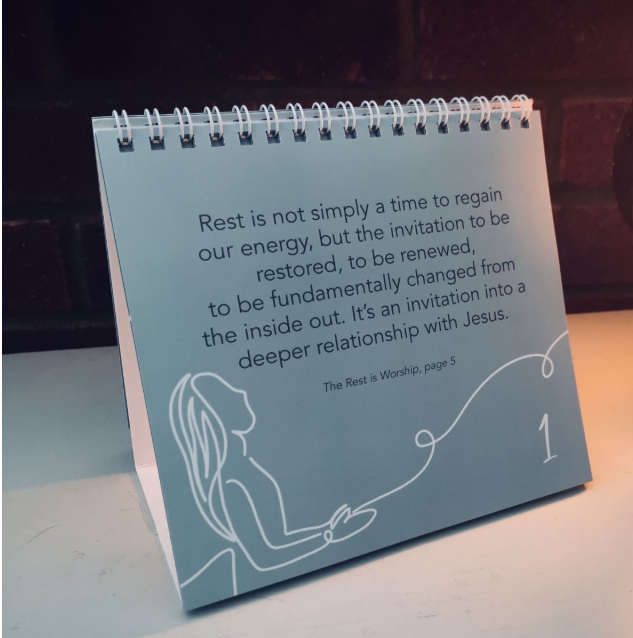 Rest is not simply a time to regain
our energy, but the invitation to be
restored, to be renewed,
to be fundamentally changed from
the inside out. It’s an invitation into a
deeper relationship with Jesus.
The Rest is Worship, page 5
1